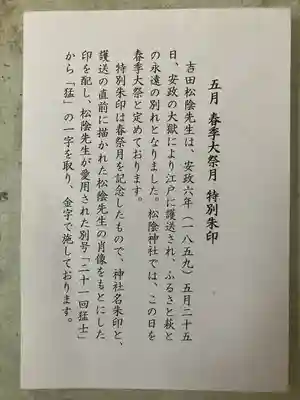 五月 春季大祭月 特別朱印
吉田松陰先生は、安政六年(一八五九)五月二十五
日、安政の大獄により江戸に護送され、ふるさと萩と
の永遠の別れとなりました。松陰神社では、この日を
春季大祭と定めております。
特別朱印は春祭月を記念したもので、神社名朱印と、
護送の直前に描かれた松陰先生の肖像をもとにした
印を配し、松陰先生が愛用された別号「二十一回猛士」
から「猛」の一字を取り、金字で施しております。